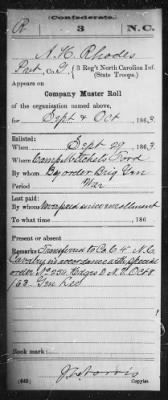 (Confederate.)
R 3 N.C.
A. H. Rhodes
Pvt, Co. , 3 Reg't North Carolina Inf.
(State Troops.)
Appears on
Company Muster Roll
of the organization named above,
for Sept & Oct, 1863.
Enlisted:
When Sept 29, 1863.
Where Camp Ford
By whom By order Brig Gen
Period War
Last paid:
By whom Never paid since enrollment
To what time , 186
Present or absent
Remarks: Transferred to Co. 4" N.C.
Cavalry in accordance with special
order No Hdqrs D N. V. Oct
/63. Gen Lee
Book mark:
(642) Copyist.